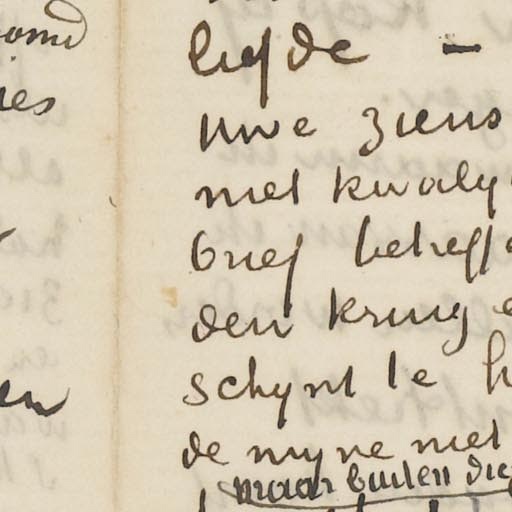 liefde —
uwe ziens
niet kwaly
brief betreff
den kring e
schynt te h
de myne niet
maar buiten die